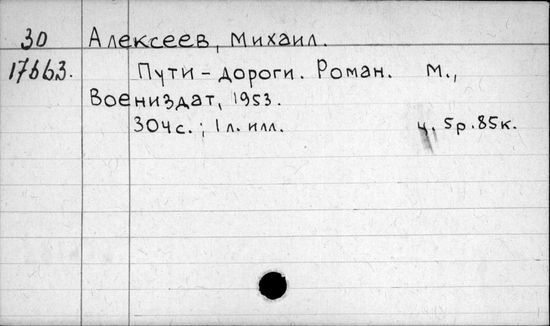 30 Алексеев, Михаил.
17663. Пути-дороги. Роман. М.,
Воениздат, 1953.
304с.; 1л. илл. ц. 5р.85к.